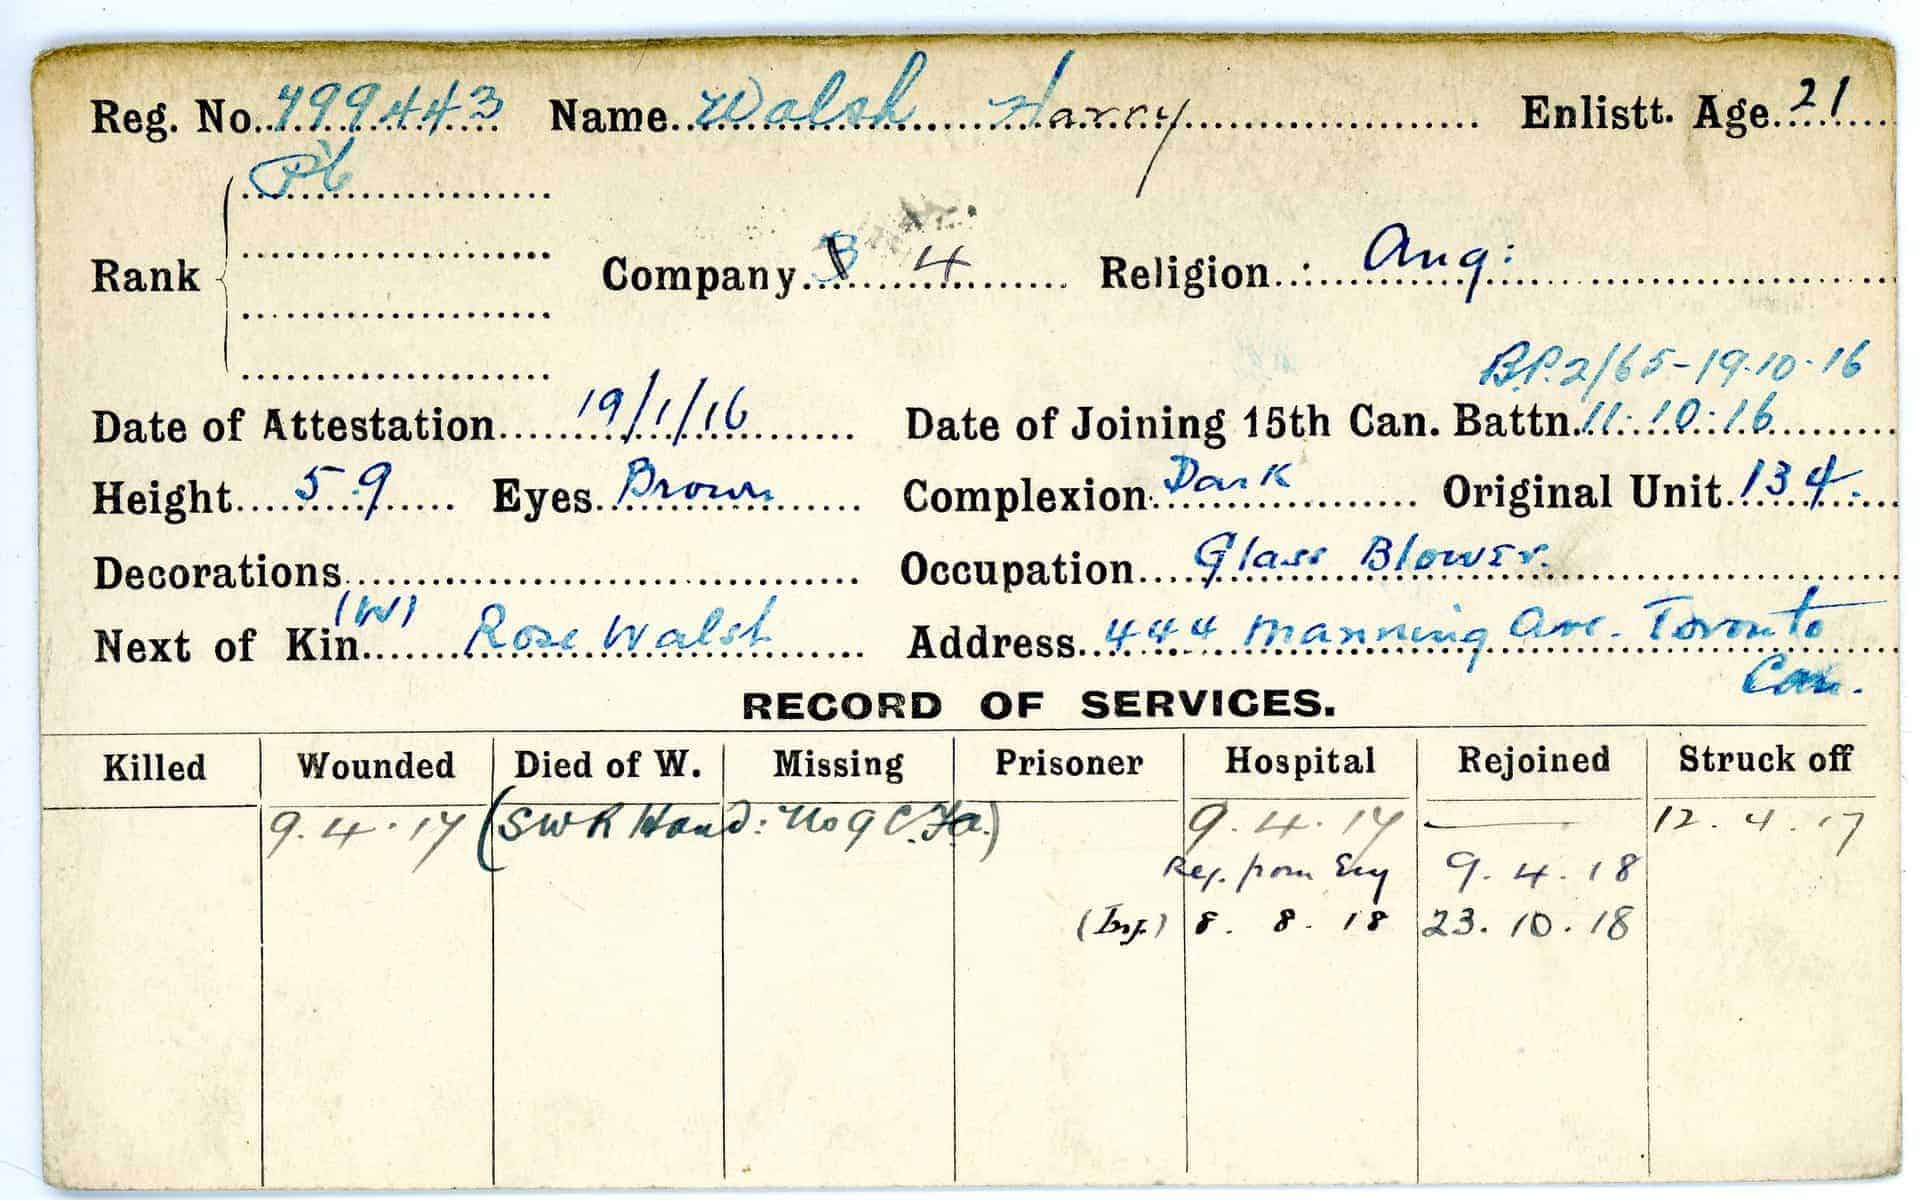 Reg. No. 799443 Name Walsh Harry Enlistt. Age 21
Pte
Rank Company B 4 Religion : Ang:
B.P.2/65-19.10.16
Date of Attestation 19/1/16 Date of Joining 15th Can. Battn. 11.10.16
Height 5.9 Eyes Brown Complexion Dark Original Unit 134.
Decorations Occupation Glass Blower.
(W)
Next of Kin Rose Walsh Address 444 Manning Ave. Toronto
Can.
RECORD OF SERVICES.
Killed Wounded Died of W. Missing Prisoner Hospital Rejoined Struck off
9.4.17 (SW R Hand: No 9 C.Fa.) 9.4.17 — 12.4.17
Rej. from Eng 9.4.18
(Inj.) 8.8.18 23.10.18